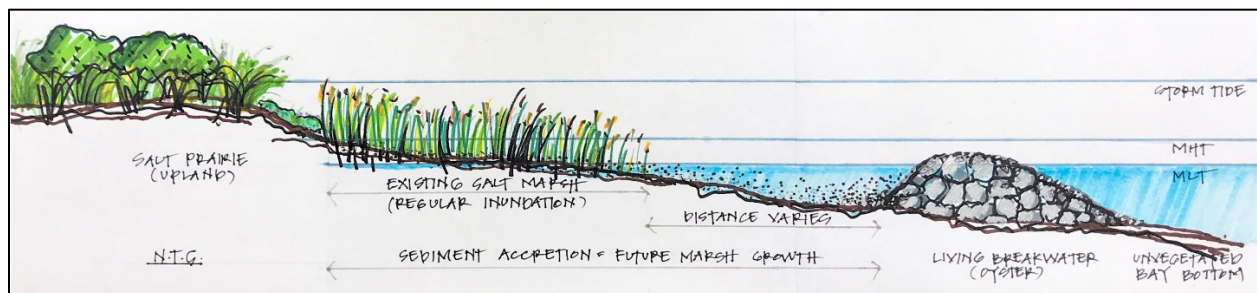 STORM TIDE
MHT
MLT
SALT PRAIRIE
(UPLAND)
EXISTING SALT MARSH
(REGULAR INUNDATION)
DISTANCE VARIES
N.T.G.
SEDIMENT ACCRETION = FUTURE MARSH GROWTH
LIVING BREAKWATER
(OYSTER)
UNVEGETATED
BAY BOTTOM